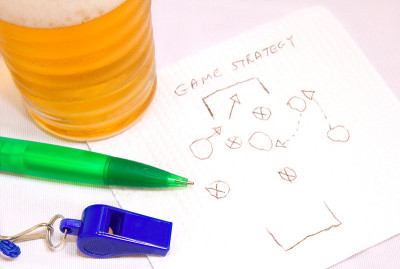 GAME STRATEGY